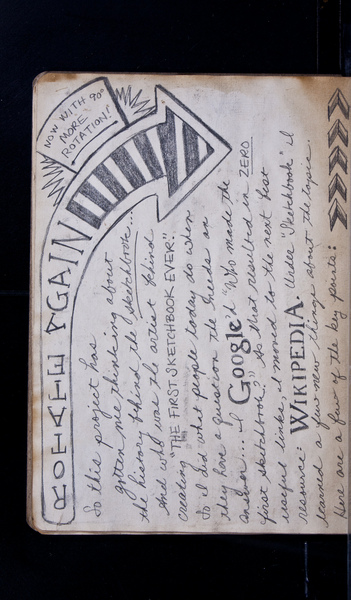 ROTATE AGAIN
NOW WITH 90°
MORE
ROTATION!
So this project has
gotten me thinking about
the history behind the sketchbook...
And who was the artist behind
creating "THE FIRST SKETCHBOOK EVER".
So I did what people today do when
they have a question the needs an
answer... I Google'd "Who made the
first sketchbook?" As that resulted in ZERO
useful links, I moved to the next best
resource: WIKIPEDIA. Under "Sketchbook" I
learned a few new things about the topic.
Here are a few of the key points: